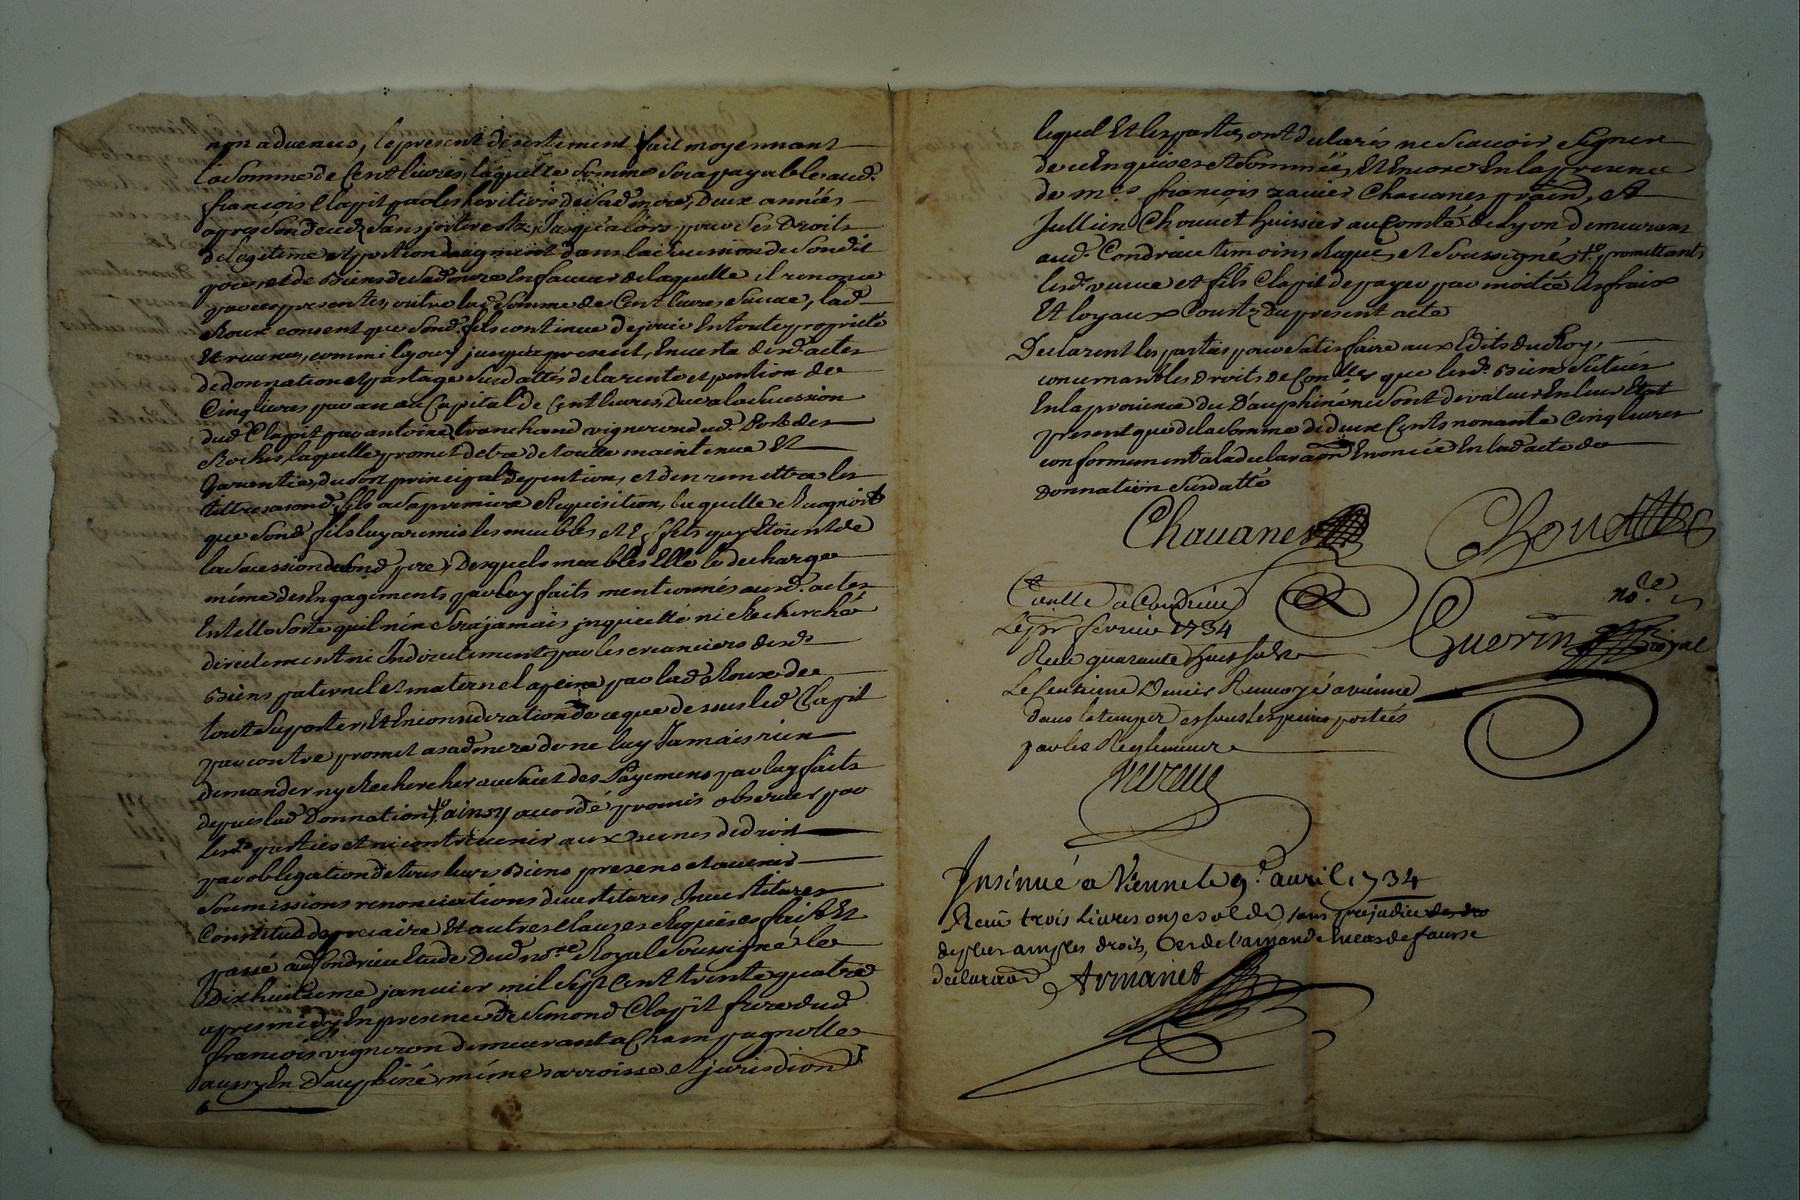 non advenues, le present desistement fait moyennant
la somme de Cent livres, laquelle somme sera payable aud.
françois Clapit par les heritiers de sad. mere, Deux années
apres son decez sans interestz, Jusqu'alors pour ses Droits
de legitime et portion daugment dans la succession de son dit
pere, et de Biens de sad. mere En faveur de laquelle il renonce
par ces presentes, outre lad. somme de Cent livres sauve, lad.
Roux consent que sond. fils continue de jouir En toute proprieté
Et revenus, comme il a jouy jusqu'a present, En vertu desd. actes
de donnation et partage susdattés de la rente et pention de
Cinq livres par an au Capital de Cent livres, Due a la succession
dud. Clapit par antoine tranchand vigneron dud.
Roches, laquelle promet de tre de toutte maintenue Et
Garentie, du sort principal de pention, et d'en remettre les
tittres a sond. fils a sa premiere Requisition, laquelle Recognoit
que sond. fils luy a remis les meubles Et Effets quy Etoient de
la succession de sond. pere, Desquels meubles Elle le decharge
même des Engagements par luy faits mentionnés auxd. actes
En telle sorte quil n'en sera jamais inquietté ni Recherché
directement ni Indirectement par les creanciers desd.
Biens paternel et maternel a peine par lad. Roux de
tout suporter, Et En consideration de ce que dessus led. Clapit
par contre promet a sad. mere de ne luy Jamais rien
demander ny Rechercher au sujet des Payemens par luy faits
depuis lad. Donnation ainsy accordé promis observer par
lesd. parties et ni contrevenir aux peines de droit
par obligation de tous leurs Biens presens et avenir
soumissions renonciations devestitures Investitures
Constitud. de precaire Et autres clauses Requises fait Et
passé aud. Condrieu Etude Dud. nore. Royal soussigné le
Dixhuitieme janvier mil sept cent trente quatre
apres midy En presence de Simond Clapit frere dud.
françois vigneron demeurant a Champagnolle
aussy En Dauphiné, même parroisse et jurisdion
lequel Et les parties ont declarés ne scavoir signer
de ce Enquises et sommées, Et Encore En la presence
de mes. françois xavier Chavanes praen, et
Jullien Chouvet huissier au Comté de Lyon demeurans
aud. Condrieu temoins Requis et soussignés promettants
lesd. veuve et fils Clapit de payer par moitiée les fraix
Et loyaux Coustz Du present acte
Declarent les parties pour satisfaire aux Edits du Roy,
concernant les Droits de Conlles que lesd. Biens scitués
En la province du Dauphiné ne sont de valeur En leur Etat
present que de la somme de deux Cents nonante Cinq livres
conformement a la declaraon Enoncée En lad. acte de
Donnation susdatté
Chavanes Chouvet
Conllé a Condrieu
Le pr fevrier 1734
Receu quarante huit sols
Guerin nore. Royal
Le Centieme Denier Renvoyé a vienne
dans le temps et sous les peines portées
par les Reglemens
Insinué a Vienne le 9e. avril 1734
Receu trois livres onze sol 8 d, sans prejudice des dro
de plus amples droits, Ou de l'amande En cas de fausse
declaraon Armanet